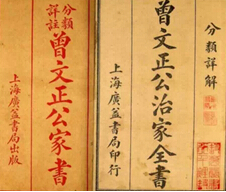 分類詳註
曾文正公家書
上海廣益書局出版
分類詳解
曾文正公治家全書
上海廣益書局印行